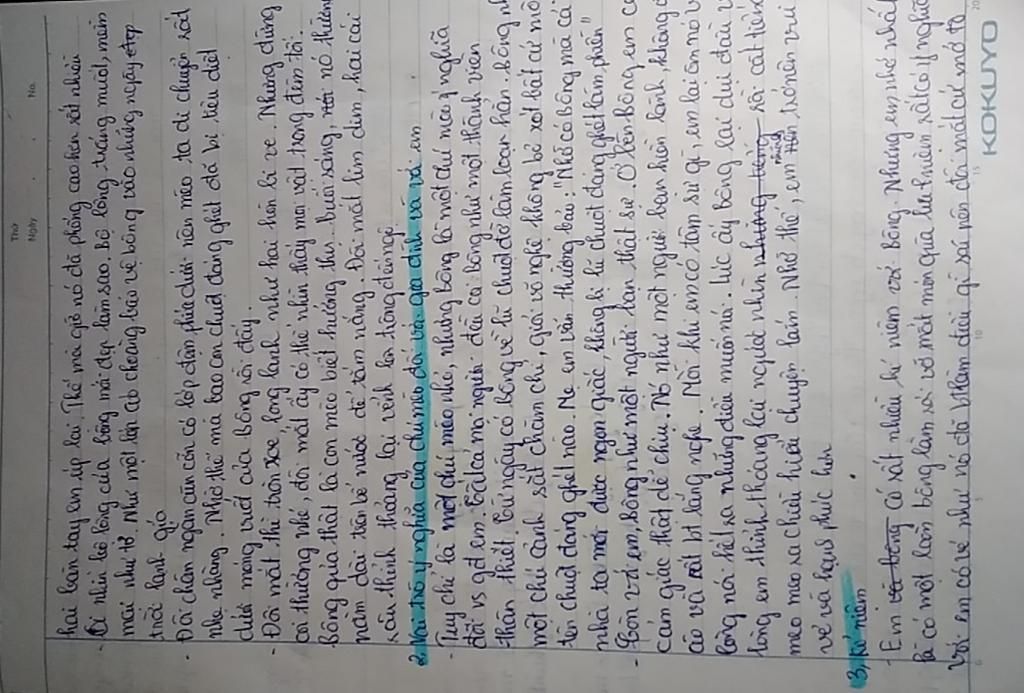 Thứ
Ngày
No.
hai bàn tay em úp lại. Thế mà giờ nó đã phổng cao hơn rất nhiều
- Ôi nhìn bộ lông của bông mới đẹp làm sao. Bộ lông trắng muốt, mềm
mại như tơ. Như một lớp áo choàng bảo vệ bông vào những ngày
trời lạnh giá
- Đôi chân ngắn cũn có lớp đệm phía dưới nên mèo ta di chuyển rất
nhẹ nhàng. Nhờ thế mà bao con chuột đáng ghét đã bị tiêu diệt
dưới móng vuốt của bông rồi đấy.
- Đôi mắt thì tròn xoe long lanh như hai hòn bi ve. Nhưng đừng
coi thường nhé, đôi mắt ấy có thể nhìn thấy mọi vật trong đêm tối.
Bông quả thật là con mèo biết hưởng thụ. buổi sáng, nó thường
nằm dài trên bể nước để tắm nắng. Đôi mắt lim dim, hai cái
tai thỉnh thoảng lại vểnh lên trông đáng
2. Vai trò ý nghĩa của chú mèo đối với gia đình và với em
- Tuy chỉ là một chú mèo nhỏ, nhưng bông là một chú mèo ý nghĩa
đối vs gđ em. Tất cả mọi người đều coi bông như một thành viên
thân thiết. Từ ngày có bông về lũ chuột đỡ làm loạn hẳn. bông
một chú canh rất chăm chỉ, giỏi võ nghệ không bỏ xót bất cứ
tên chuột đáng ghét nào. Mẹ em vẫn thường bảo: "Nhờ có bông mà cả
nhà ta mới được ngon giấc, không bị lũ chuột đáng ghét làm phiền"
- Còn với em, bông như một người bạn thật sự. Ở bên bông, em
cảm giác thật dễ chịu. Nó như một người bạn hiền lành, không
và rất biết lắng nghe. Mỗi khi em có tâm sự gì, em lại ôm nó
lòng nói hết ra những điều muốn nói. Lúc ấy bông lại dụi đầu
lòng em thỉnh thoảng lại ngước nhìn rồi cất tiếng
meo meo ra chiều hiểu chuyện lắm. Nhờ thế, em trở nên vui
vẻ và hạnh phúc hơn
3, Kỉ niệm
- Em có rất nhiều kỉ niệm với bông. Nhưng em nhớ nhất
là có một lần bông làm rơi vỡ một món quà lưu niệm rất có ý nghĩa
với em có vẻ như nó đã biết làm điều gì sai nên đôi mắt cứ mở to
KOKUYO